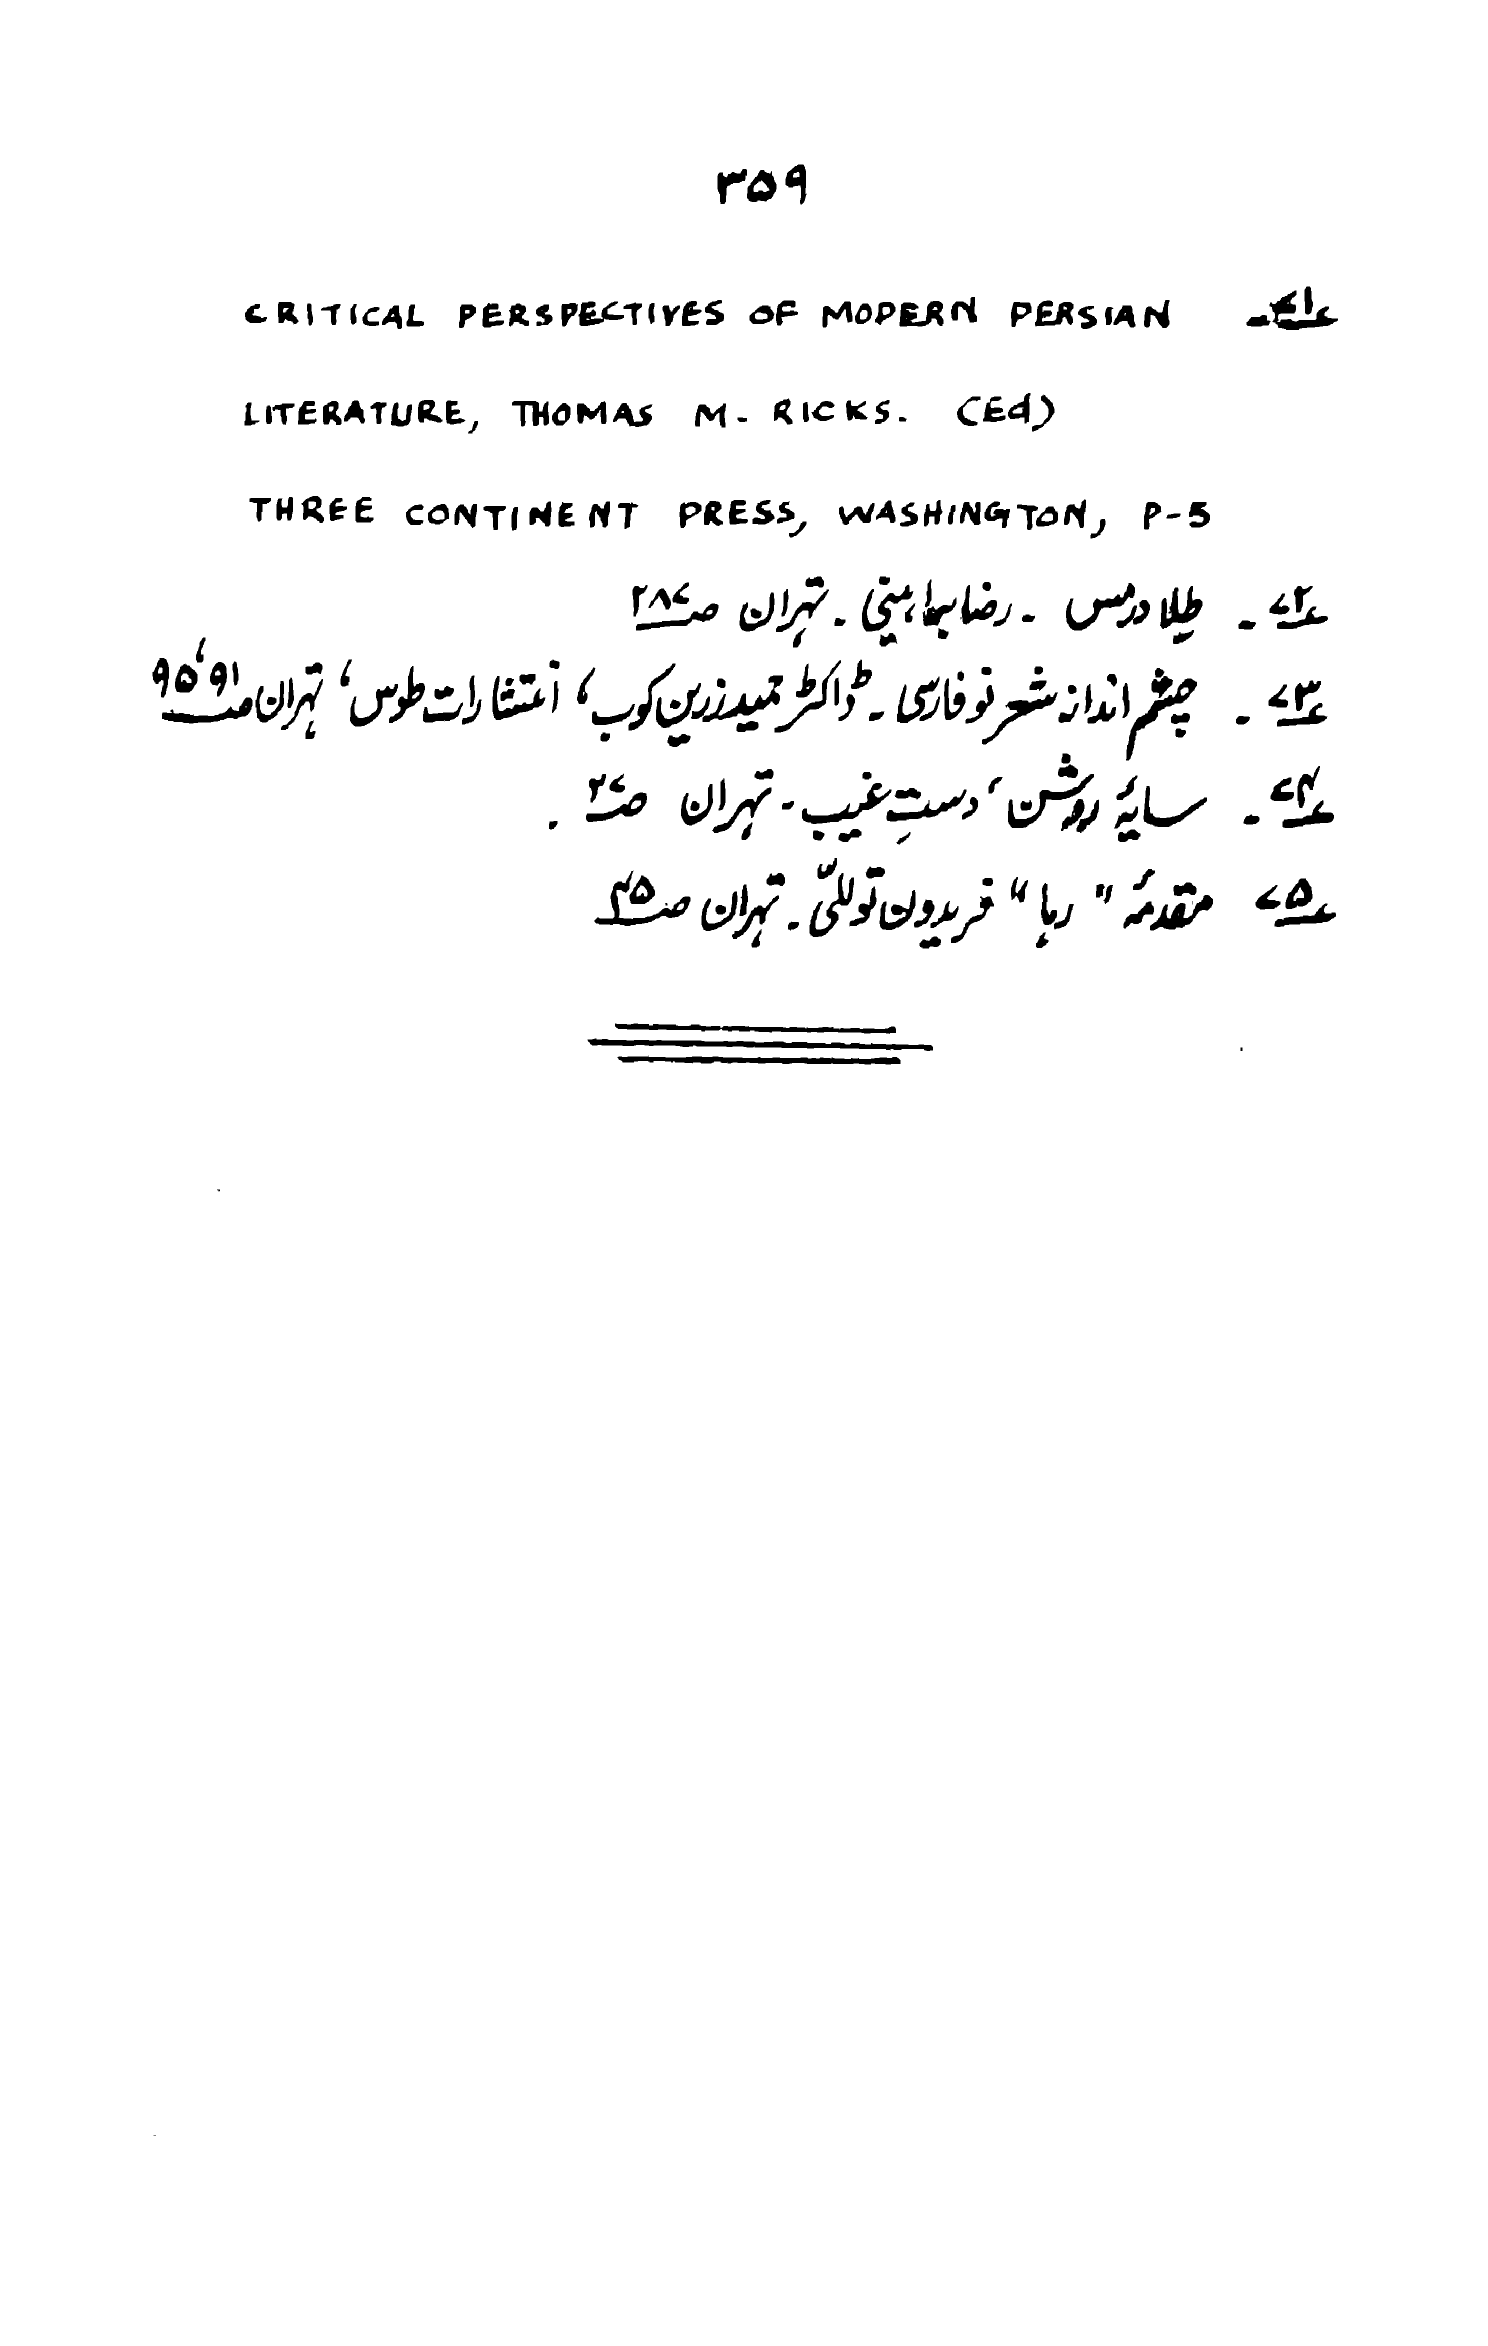 ۳۵۹
؎۷۱۔ CRITICAL PERSPECTIVES OF MODERN PERSIAN
LITERATURE, THOMAS M. RICKS. (Ed)
THREE CONTINENT PRESS, WASHINGTON, P-5
؎۷۲۔ طلا در مس ۔ رضا براہینی ۔ تہران ص ۲۸۷
؎۷۳۔ چشم انداز شعر نو فارسی ۔ ڈاکٹر حمید زرین کوب، انتشارات طوس، تہران ص ۹۱، ۹۵
؎۷۴۔ سایۂ روشن، دستِ غیب ۔ تہران ص ۲۷ .
؎۷۵ مقدمۂ "رہا" فریدون تولّلی ۔ تہران ص ۴۵